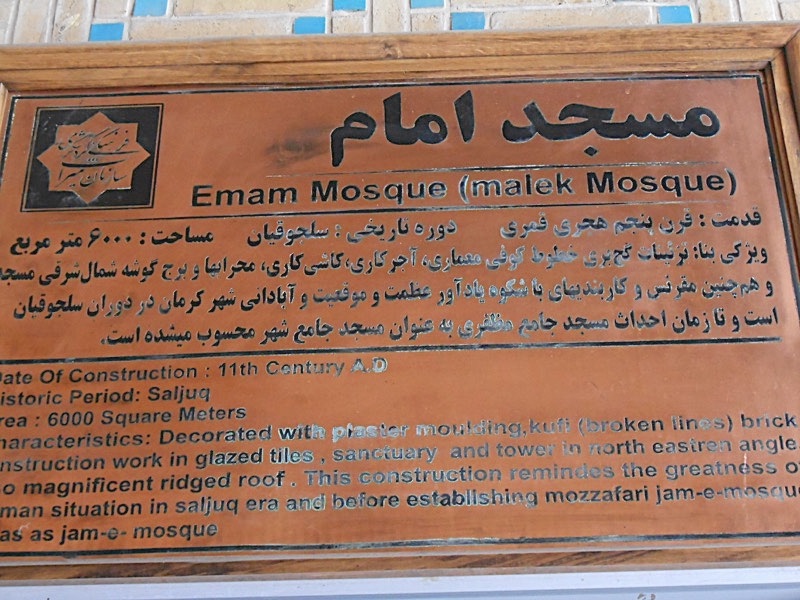 سازمان میراث
فرهنگی گردشگری
مسجد امام
Emam Mosque (malek Mosque)
قدمت : قرن پنجم هجری قمری دوره تاریخی : سلجوقیان مساحت : ۶۰۰۰ متر مربع
ویژگی بنا: تزئینات گچبری خطوط کوفی معماری، آجرکاری، کاشی‌کاری، محرابها و برج گوشه شمال‌شرقی مسجد
و هم‌چنین مقرنس و کاربندیهای با شکوه یادآور عظمت و موقعیت و آبادانی شهر کرمان در دوران سلجوقیان
است و تا زمان احداث مسجد جامع مظفری به عنوان مسجد جامع شهر محسوب میشده است.
ate Of Construction : 11th Century A.D
istoric Period: Saljuq
rea : 6000 Square Meters
haracteristics: Decorated with plaster moulding,kufi (broken lines) brick
nstruction work in glazed tiles , sanctuary and tower in north eastren angle
o magnificent ridged roof . This construction remindes the greatness o
man situation in saljuq era and before establishing mozzafari jam-e-mosque
as as jam-e- mosque